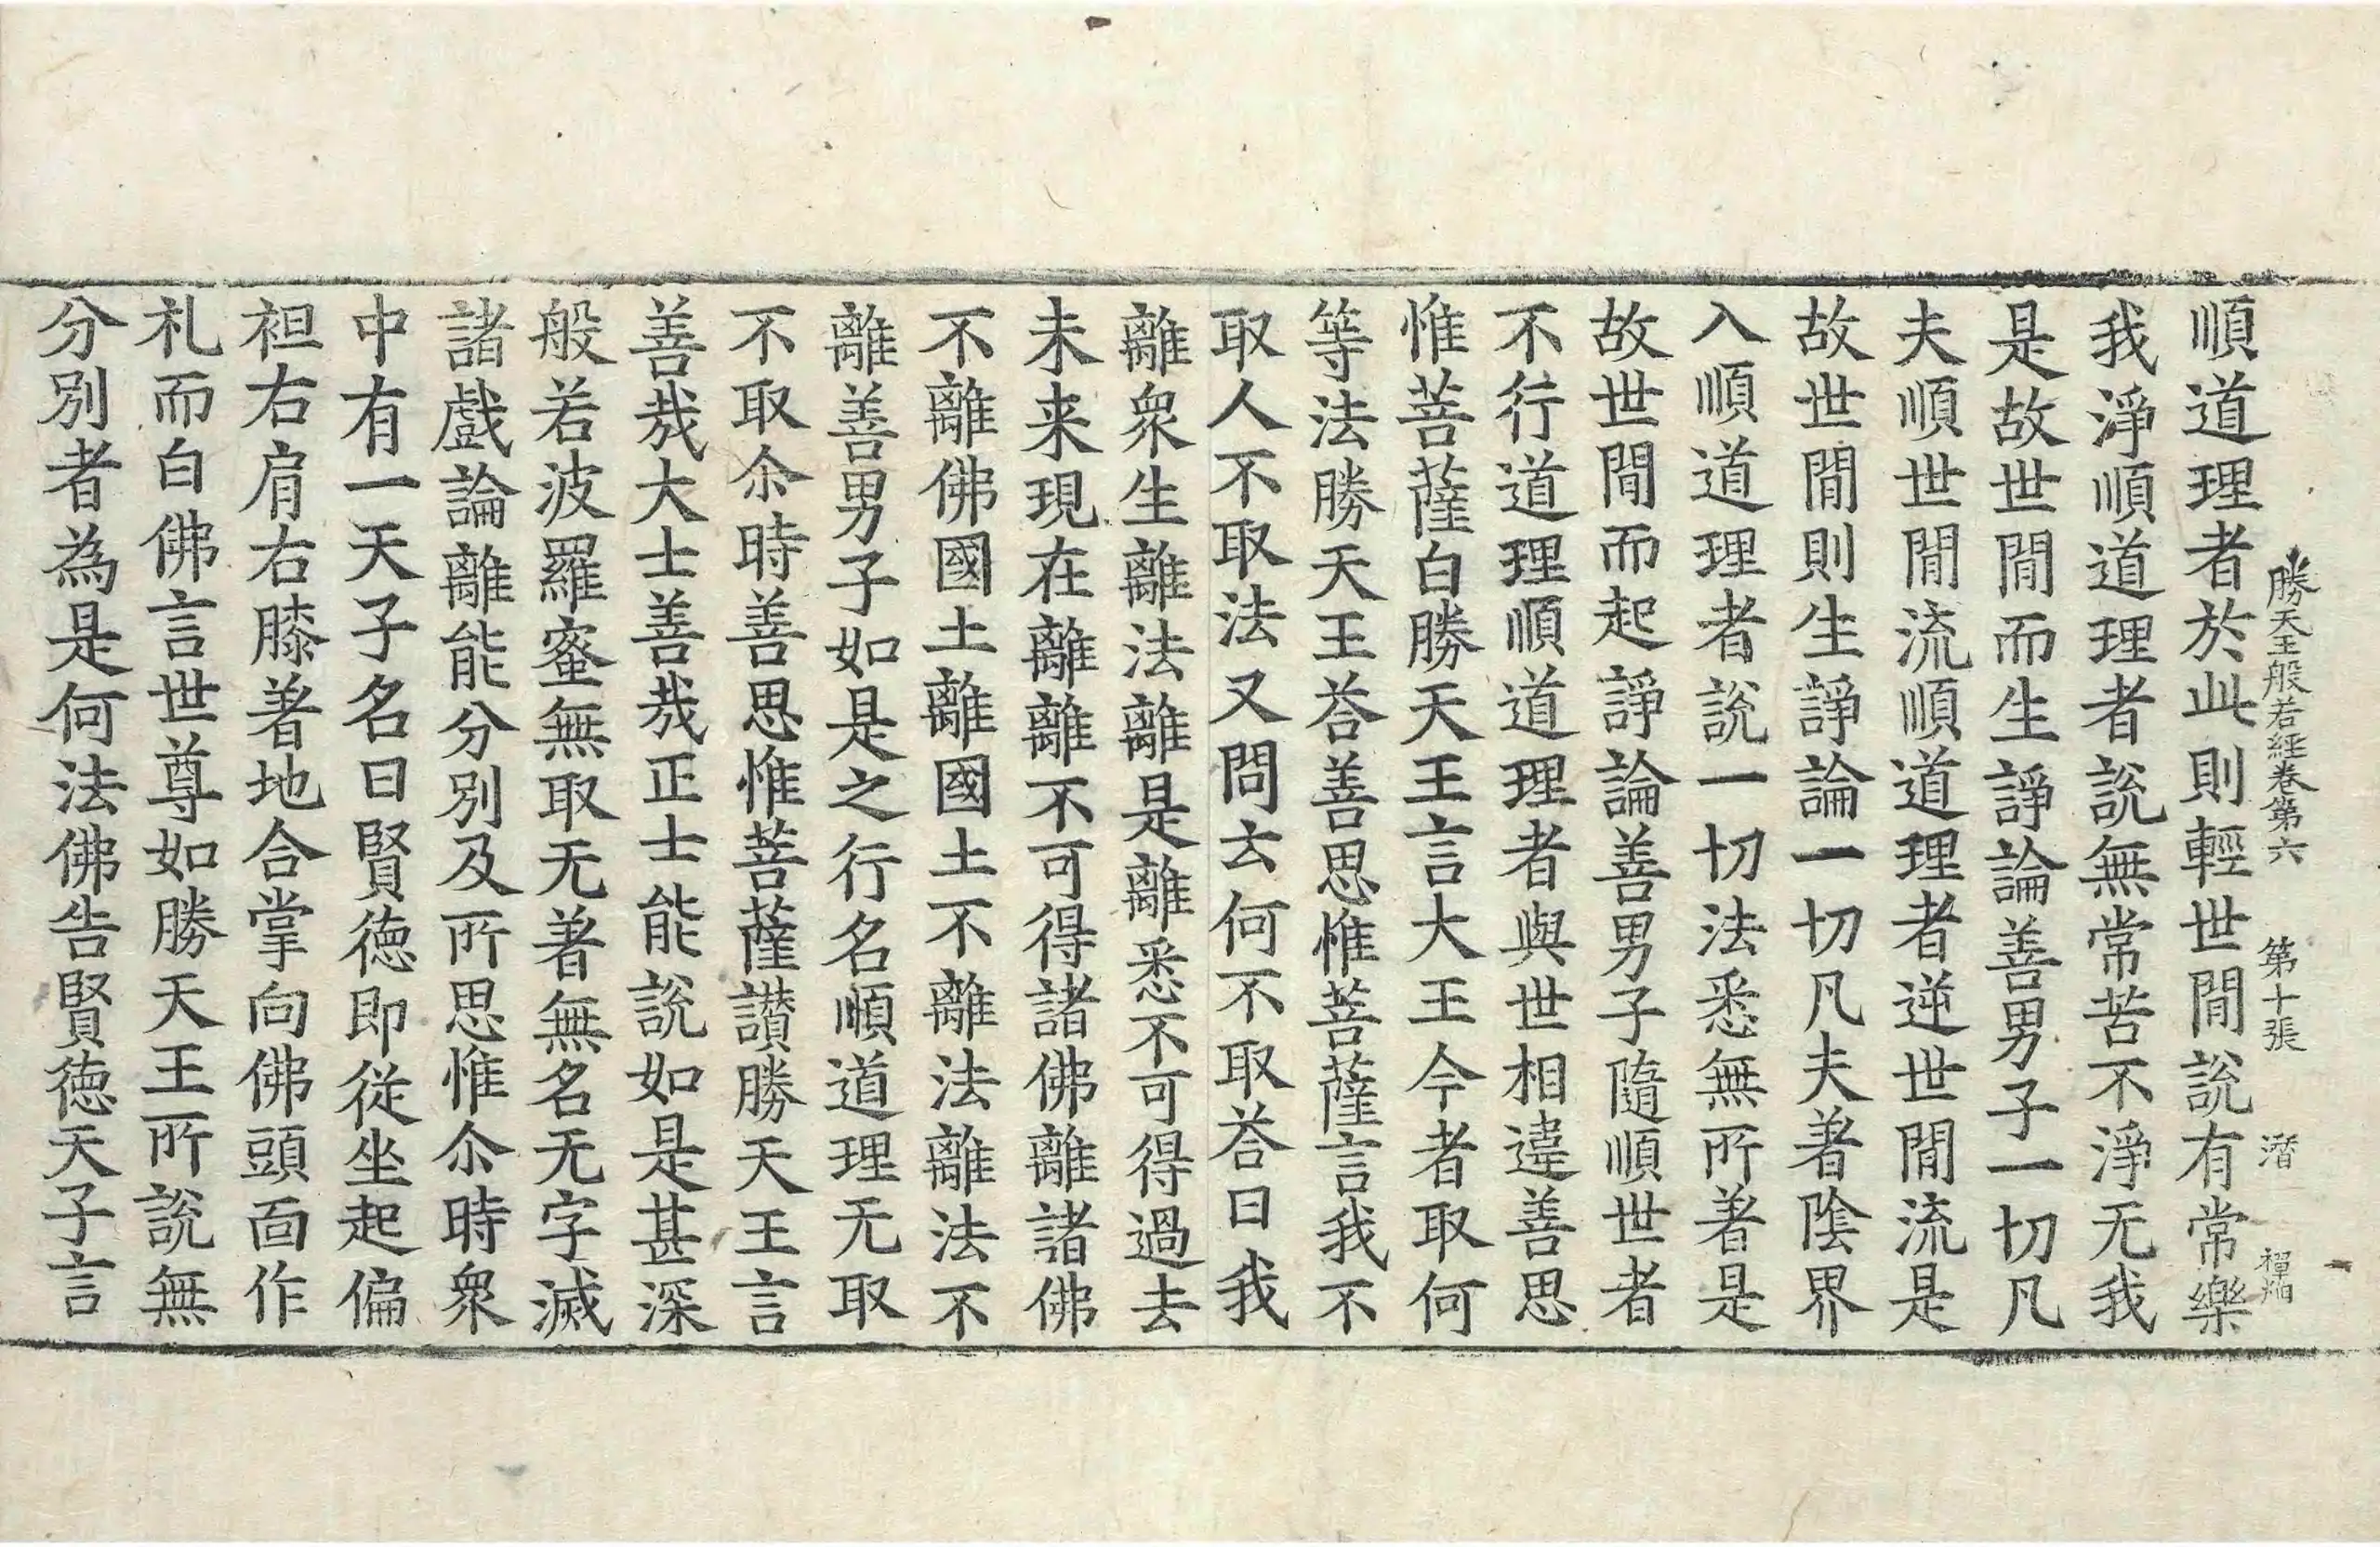 勝天王般若経卷第六 第十張 潛
順道理者於此則輕世間說有常樂
我淨順道理者說無常苦不淨无我
是故世間而生諍論善男子一切凡
夫順世間流順道理者逆世間流是
故世間則生諍論一切凡夫著陰界
入順道理者說一切法悉無所著是
故世間而起諍論善男子隨順世者
不行道理順道理者與世相違善思
惟菩薩白勝天王言大王今者取何
等法勝天王荅善思惟菩薩言我不
取人不取法又問云何不取荅曰我
離衆生離法離是離悉不可得過去
未来現在離離不可得諸佛離諸佛
不離佛國土離國土不離法離法不
離善男子如是之行名順道理无取
不取尒時善思惟菩薩讃勝天王言
善哉大士善哉正士能說如是甚深
般若波羅蜜無取无著無名无字滅
諸戲論離能分別及所思惟尒時衆
中有一天子名曰賢徳即從坐起偏
袒右肩右膝著地合掌向佛頭面作
礼而白佛言世尊如勝天王所說無
分別者為是何法佛告賢徳天子言